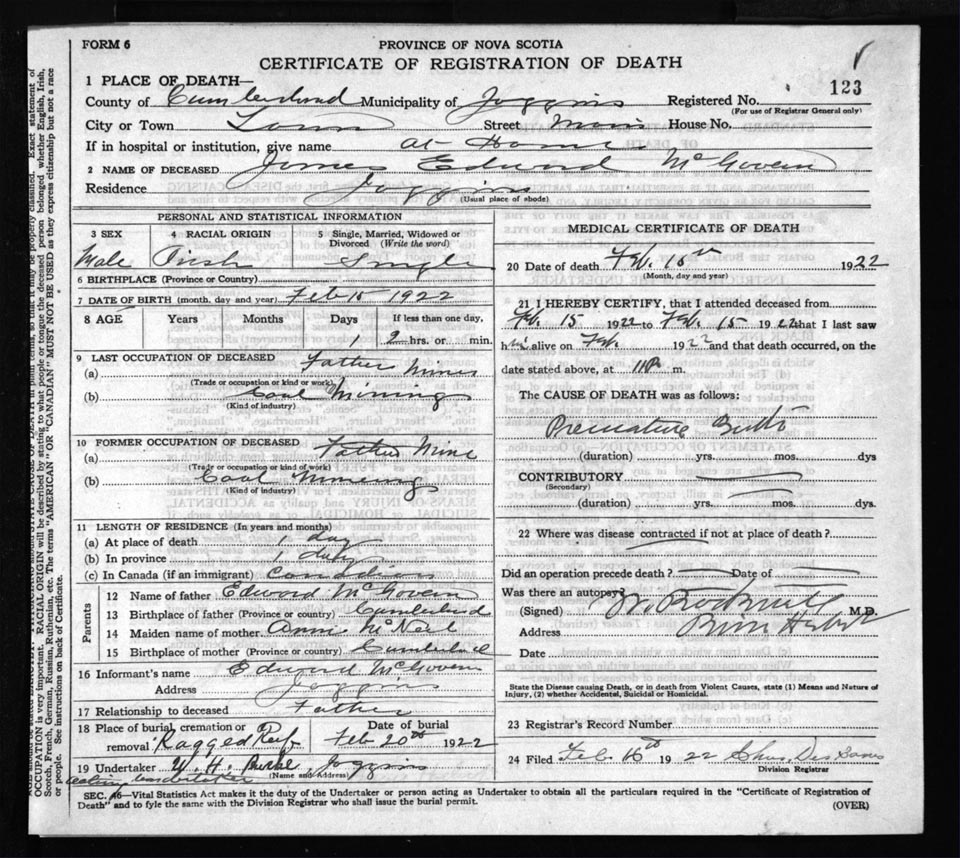 FORM 6
PROVINCE OF NOVA SCOTIA
CERTIFICATE OF REGISTRATION OF DEATH
123
1 PLACE OF DEATH—
County of Cumberland Municipality of Joggins Registered No.
(For use of Registrar General only)
City or Town Town Street Main House No.
If in hospital or institution, give name at Home
2 NAME OF DECEASED James Edward McGovern
Residence Joggins
(Usual place of abode)
PERSONAL AND STATISTICAL INFORMATION
3 SEX
Male
4 RACIAL ORIGIN
Irish
5 Single, Married, Widowed or Divorced (Write the word)
Single
6 BIRTHPLACE (Province or Country)
7 DATE OF BIRTH (month, day and year) Feb 15 1922
8 AGE Years Months Days If less than one day,
1 2 hrs. or min.
9 LAST OCCUPATION OF DECEASED
(a) Father Miner
(Trade or occupation or kind or work)
(b) Coal Mining
(Kind of industry)
10 FORMER OCCUPATION OF DECEASED
(a) Father Mine
(Trade or occupation or kind of work)
(b) Coal Mineing
(Kind of industry)
11 LENGTH OF RESIDENCE (In years and months)
(a) At place of death 1 day
(b) In province 1 day
(c) In Canada (if an immigrant) Canadian
Parents
12 Name of father Edward McGovern
13 Birthplace of father (Province or country) Cumberland
14 Maiden name of mother Ann McNeil
15 Birthplace of mother (Province or country) Cumberland
16 Informant's name Edward McGovern
Address Joggins
17 Relationship to deceased Father
18 Place of burial, cremation or removal Ragged Reef
Date of burial
Feb 20th 1922
19 Undertaker W. H. Burke Joggins
(Name and Address)
acting undertaker
MEDICAL CERTIFICATE OF DEATH
20 Date of death Feb. 15th 1922
(Month, day and year)
21 I HEREBY CERTIFY, that I attended deceased from
Feb. 15 1922 to Feb. 15 1922 that I last saw
him alive on Feb. 1922 and that death occurred, on the
date stated above, at 11 P. m.
The CAUSE OF DEATH was as follows:
Premature Birth
(duration) yrs. mos. dys
CONTRIBUTORY
(Secondary)
(duration) yrs. mos. dys.
22 Where was disease contracted if not at place of death?
Did an operation precede death? Date of
Was there an autopsy?
(Signed) M.D.
Address River Hebert
Date
State the Disease causing Death, or in death from Violent Causes, state (1) Means and Nature of
Injury, (2) whether Accidental, Suicidal or Homicidal.
23 Registrar's Record Number
24 Filed Feb. 16th 1922
Division Registrar
SEC. 46—Vital Statistics Act makes it the duty of the Undertaker or person acting as Undertaker to obtain all the particulars required in the "Certificate of Registration of
Death" and to fyle the same with the Division Registrar who shall issue the burial permit.
(OVER)
OCCUPATION is very important. RACIAL ORIGIN will be described by stating to what people or tongue the deceased person belonged whether English, Irish,
Scotch, French, German, Russian, Ruthenian, etc. The terms "AMERICAN" OR "CANADIAN" MUST NOT BE USED as they express citizenship but not a race
or people. See instructions on back of Certificate.